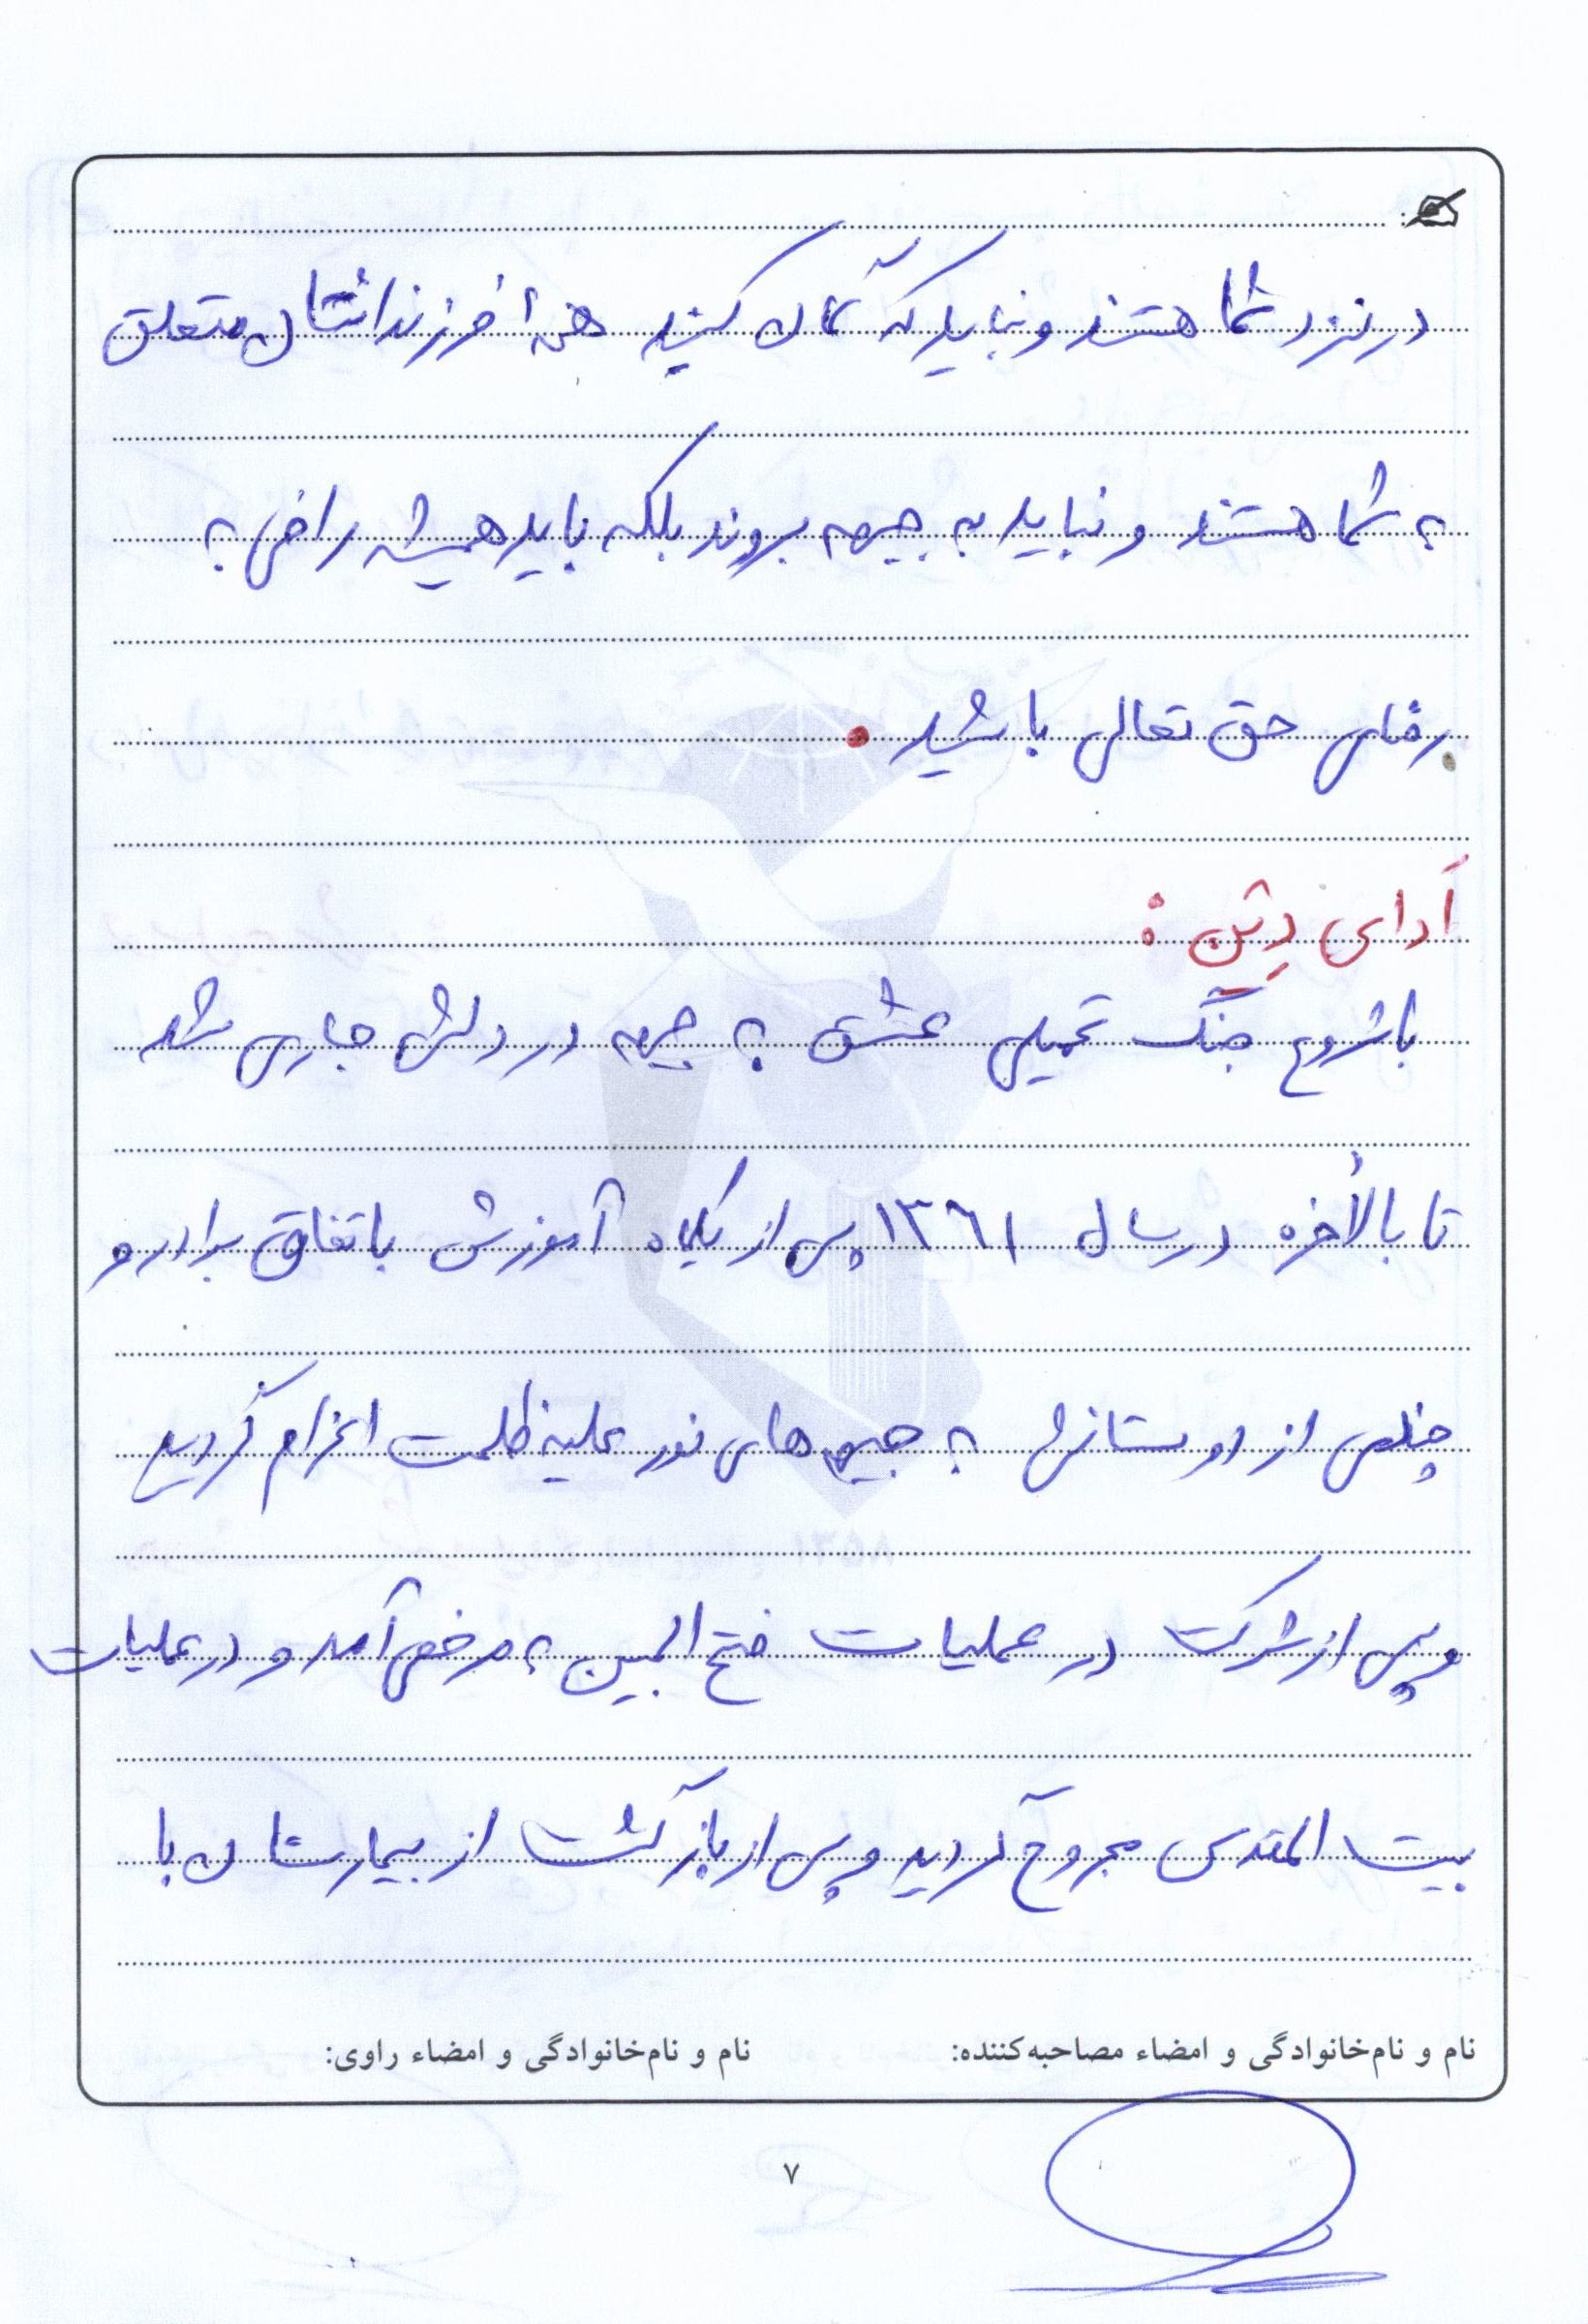 در نزد شما هستند و نباید که گمان کنید همۀ فرزندانتان متعلق
به شما هستند و نباید به جبهه بروند بلکه باید همیشه راضی به
رضای حق تعالی باشید .
اَدای دِین :
با شروع جنگ تحمیلی عشق به جبهه در دلش جاری شد
تا بالأخره در سال ۱۳۶۱ پس از یکماه آموزش باتفاق برادر و
چندی از دوستانش به جبهه های نور علیه ظلمت اعزام گردید
و پس از شرکت در عملیات فتح المبین به مرخصی آمد و در عملیات
بیت المقدس مجروح گردید و پس از بازگشت از بیمارستان با
نام و نام‌خانوادگی و امضاء مصاحبه‌کننده: نام و نام‌خانوادگی و امضاء راوی:
۷